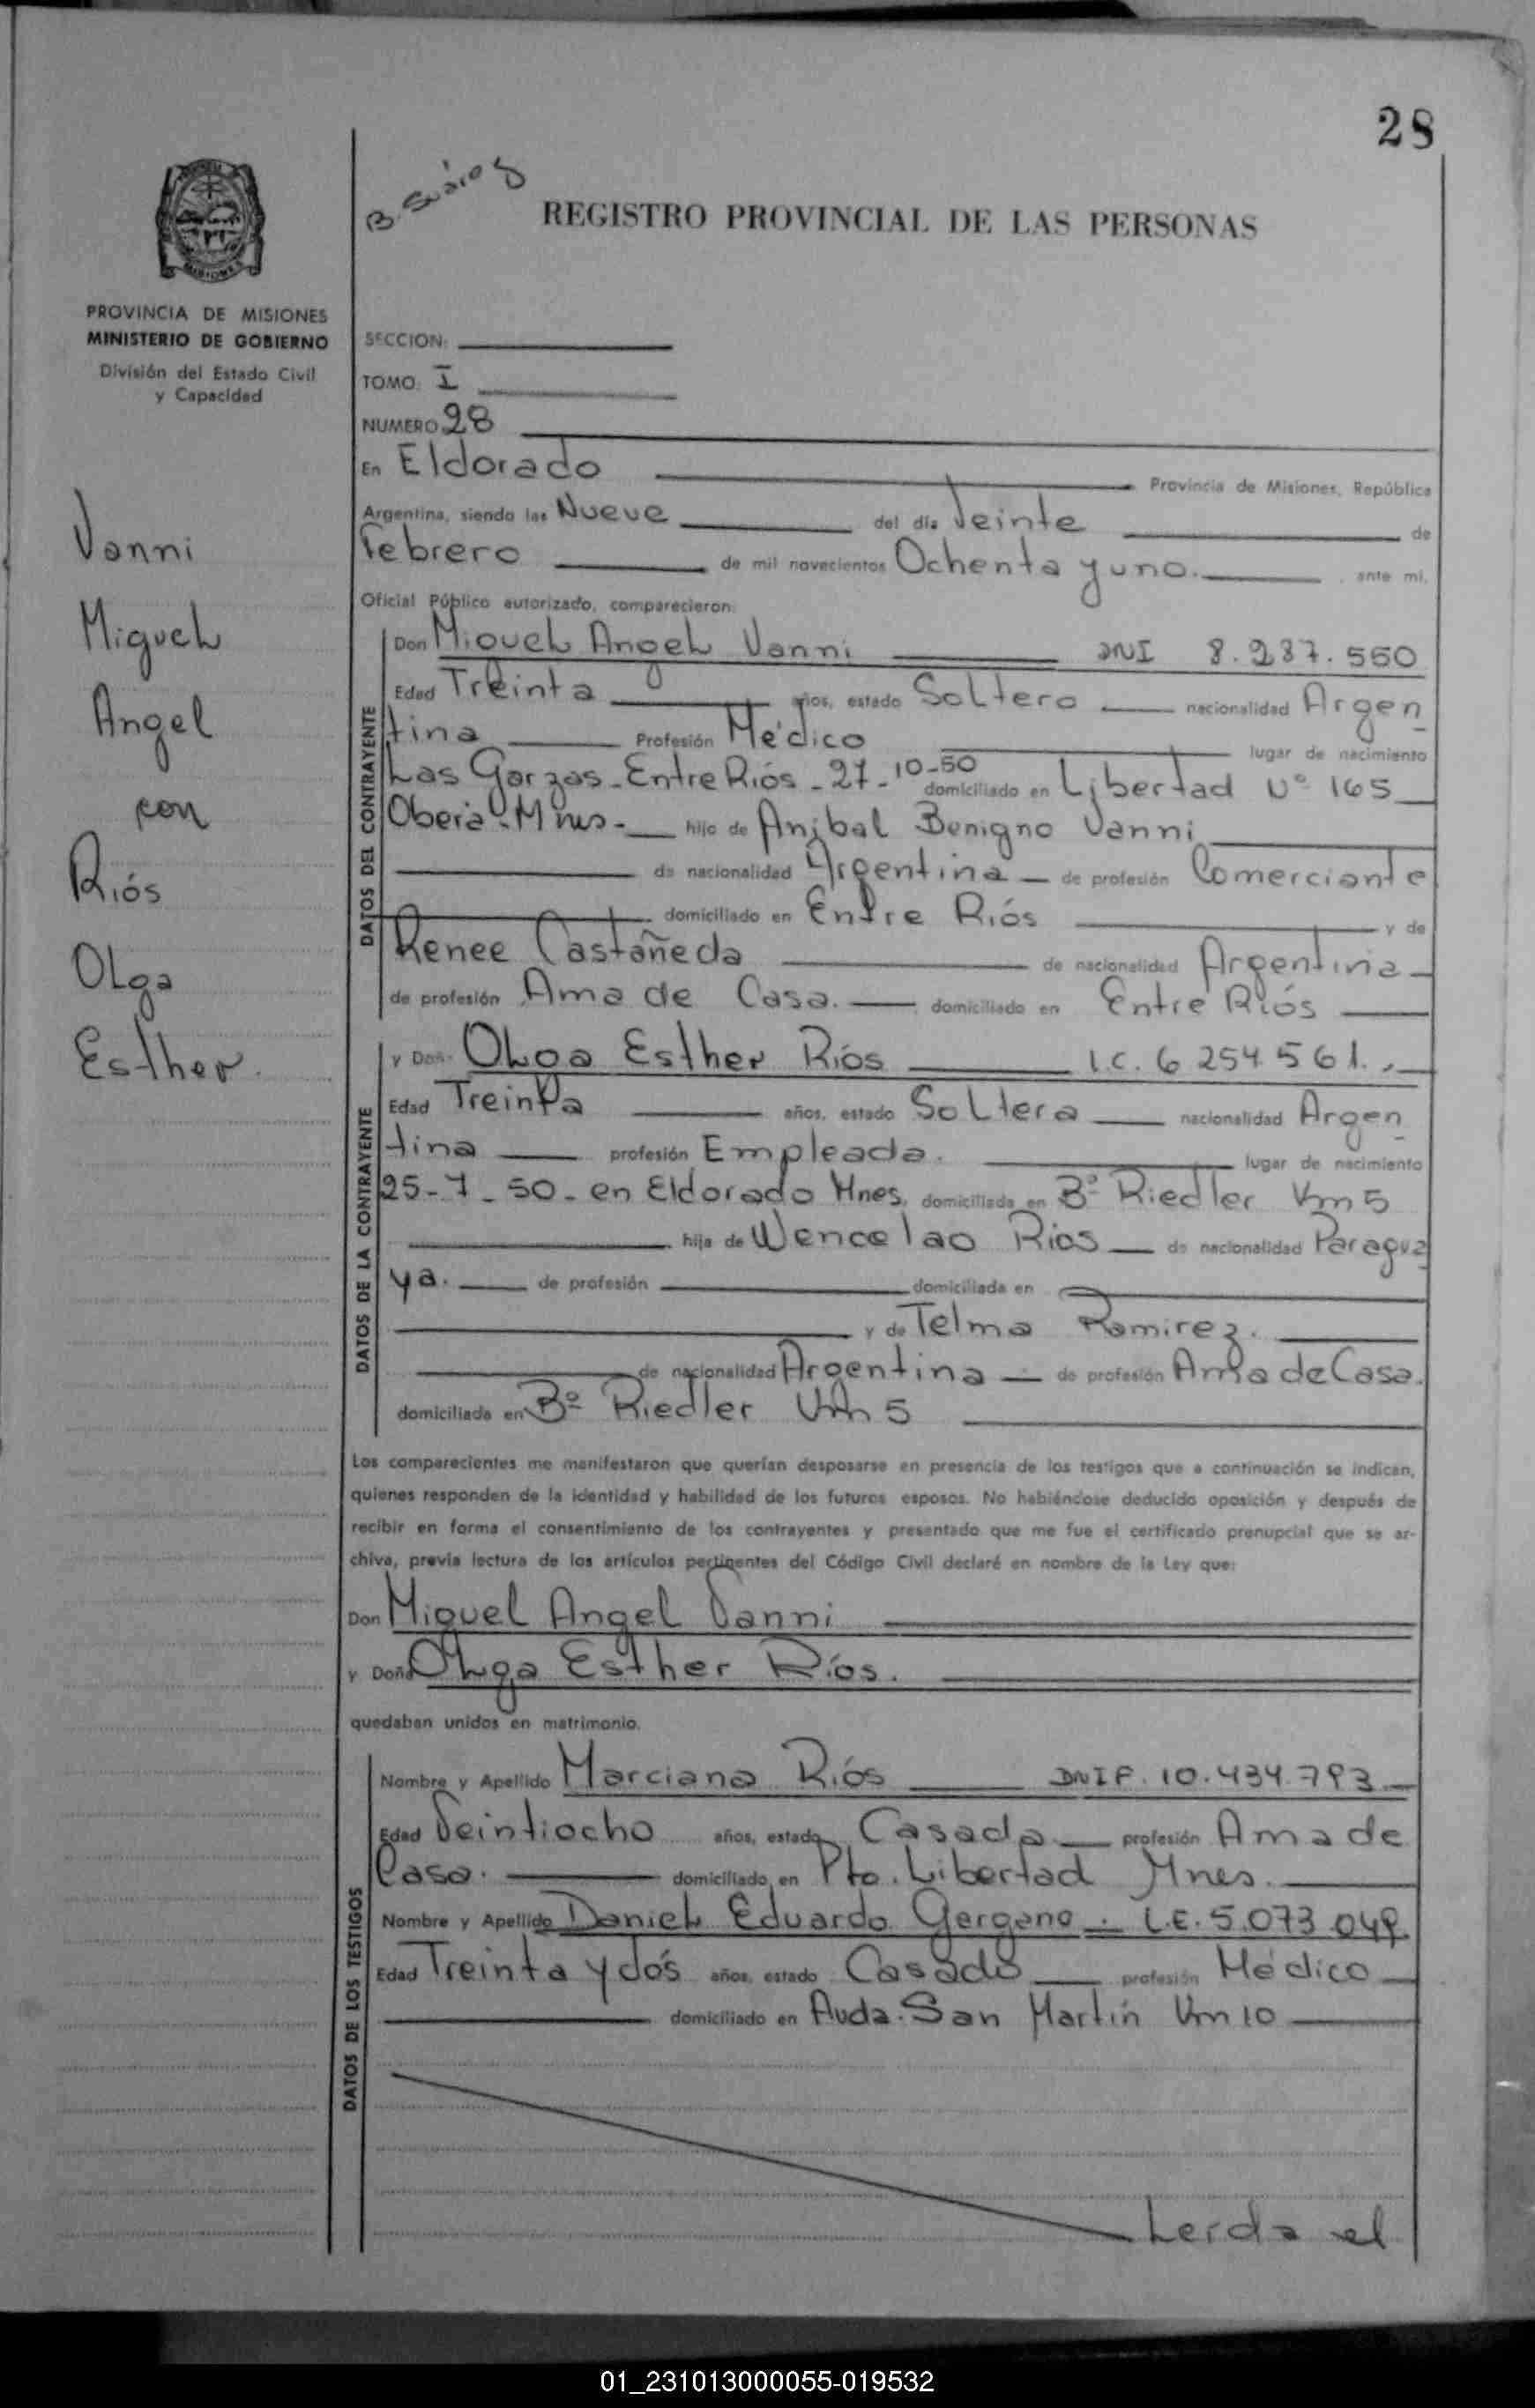 28
B. Suárez
REGISTRO PROVINCIAL DE LAS PERSONAS
PROVINCIA DE MISIONES
MINISTERIO DE GOBIERNO
División del Estado Civil
y Capacidad
Vanni
Miguel
Angel
con
Riós
Olga
Esther.
SECCION:
TOMO: I
NUMERO 28
En Eldorado Provincia de Misiones, República
Argentina, siendo las Nueve del día Veinte de
Febrero de mil novecientos Ochenta y uno. ante mi,
Oficial Público autorizado, comparecieron:
DATOS DEL CONTRAYENTE
Don Miguel Angel Vanni DNI 8.287.550
Edad Treinta años, estado Soltero nacionalidad Argen
tina Profesión Médico lugar de nacimiento
Las Garzas - Entre Riós - 27-10-50 domiciliado en Libertad Nº 165
Oberá - Mnes - hijo de Anibal Benigno Vanni
de nacionalidad Argentina de profesión Comerciante
domiciliado en Entre Riós y de
Renee Castañeda de nacionalidad Argentina
de profesión Ama de Casa. domiciliado en Entre Riós
DATOS DE LA CONTRAYENTE
y Doña Olga Esther Riós L.C. 6 254. 561.
Edad Treinta años, estado Soltera nacionalidad Argen
tina profesión Empleada. lugar de nacimiento
25-7-50- en Eldorado Mnes, domiciliada en Bº Riedler Km 5
hija de Wencelao Rios de nacionalidad Paragua
ya. de profesión domiciliada en
y de Telma Ramirez.
de nacionalidad Argentina de profesión Ama de Casa.
domiciliada en Bº Riedler Km 5
Los comparecientes me manifestaron que querían desposarse en presencia de los testigos que a continuación se indican,
quienes responden de la identidad y habilidad de los futuros esposos. No habiéndose deducido oposición y después de
recibir en forma el consentimiento de los contrayentes y presentado que me fue el certificado prenupcial que se ar-
chiva, previa lectura de los artículos pertinentes del Código Civil declaré en nombre de la Ley que:
Don Miguel Angel Vanni
y Doña Olga Esther Ríos.
quedaban unidos en matrimonio.
DATOS DE LOS TESTIGOS
Nombre y Apellido Marciana Riós DNIF. 10.434.793
Edad Veintiocho años, estado Casada profesión Ama de
Casa. domiciliado en Pto. Libertad Mnes.
Nombre y Apellido Daniel Eduardo Gergeno L.E. 5.073 049
Edad Treinta y dós años, estado Casado profesión Médico
domiciliado en Avda. San Martín Km 10
Leida el
01_231013000055-019532